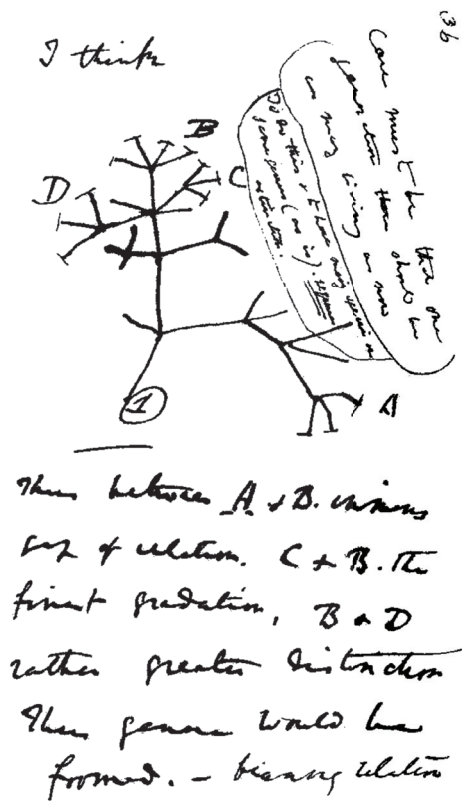 36
I think
Case must be that one
generation then should be
as many living as now
To do this & to have many species in
same genus (as is). requires
extinction.
B
D
C
A
1
Thus between A & B. immens
gap of relation. C & B. the
finest gradation, B & D
rather greater distinction
Thus genera would be
formed. — bearing relation